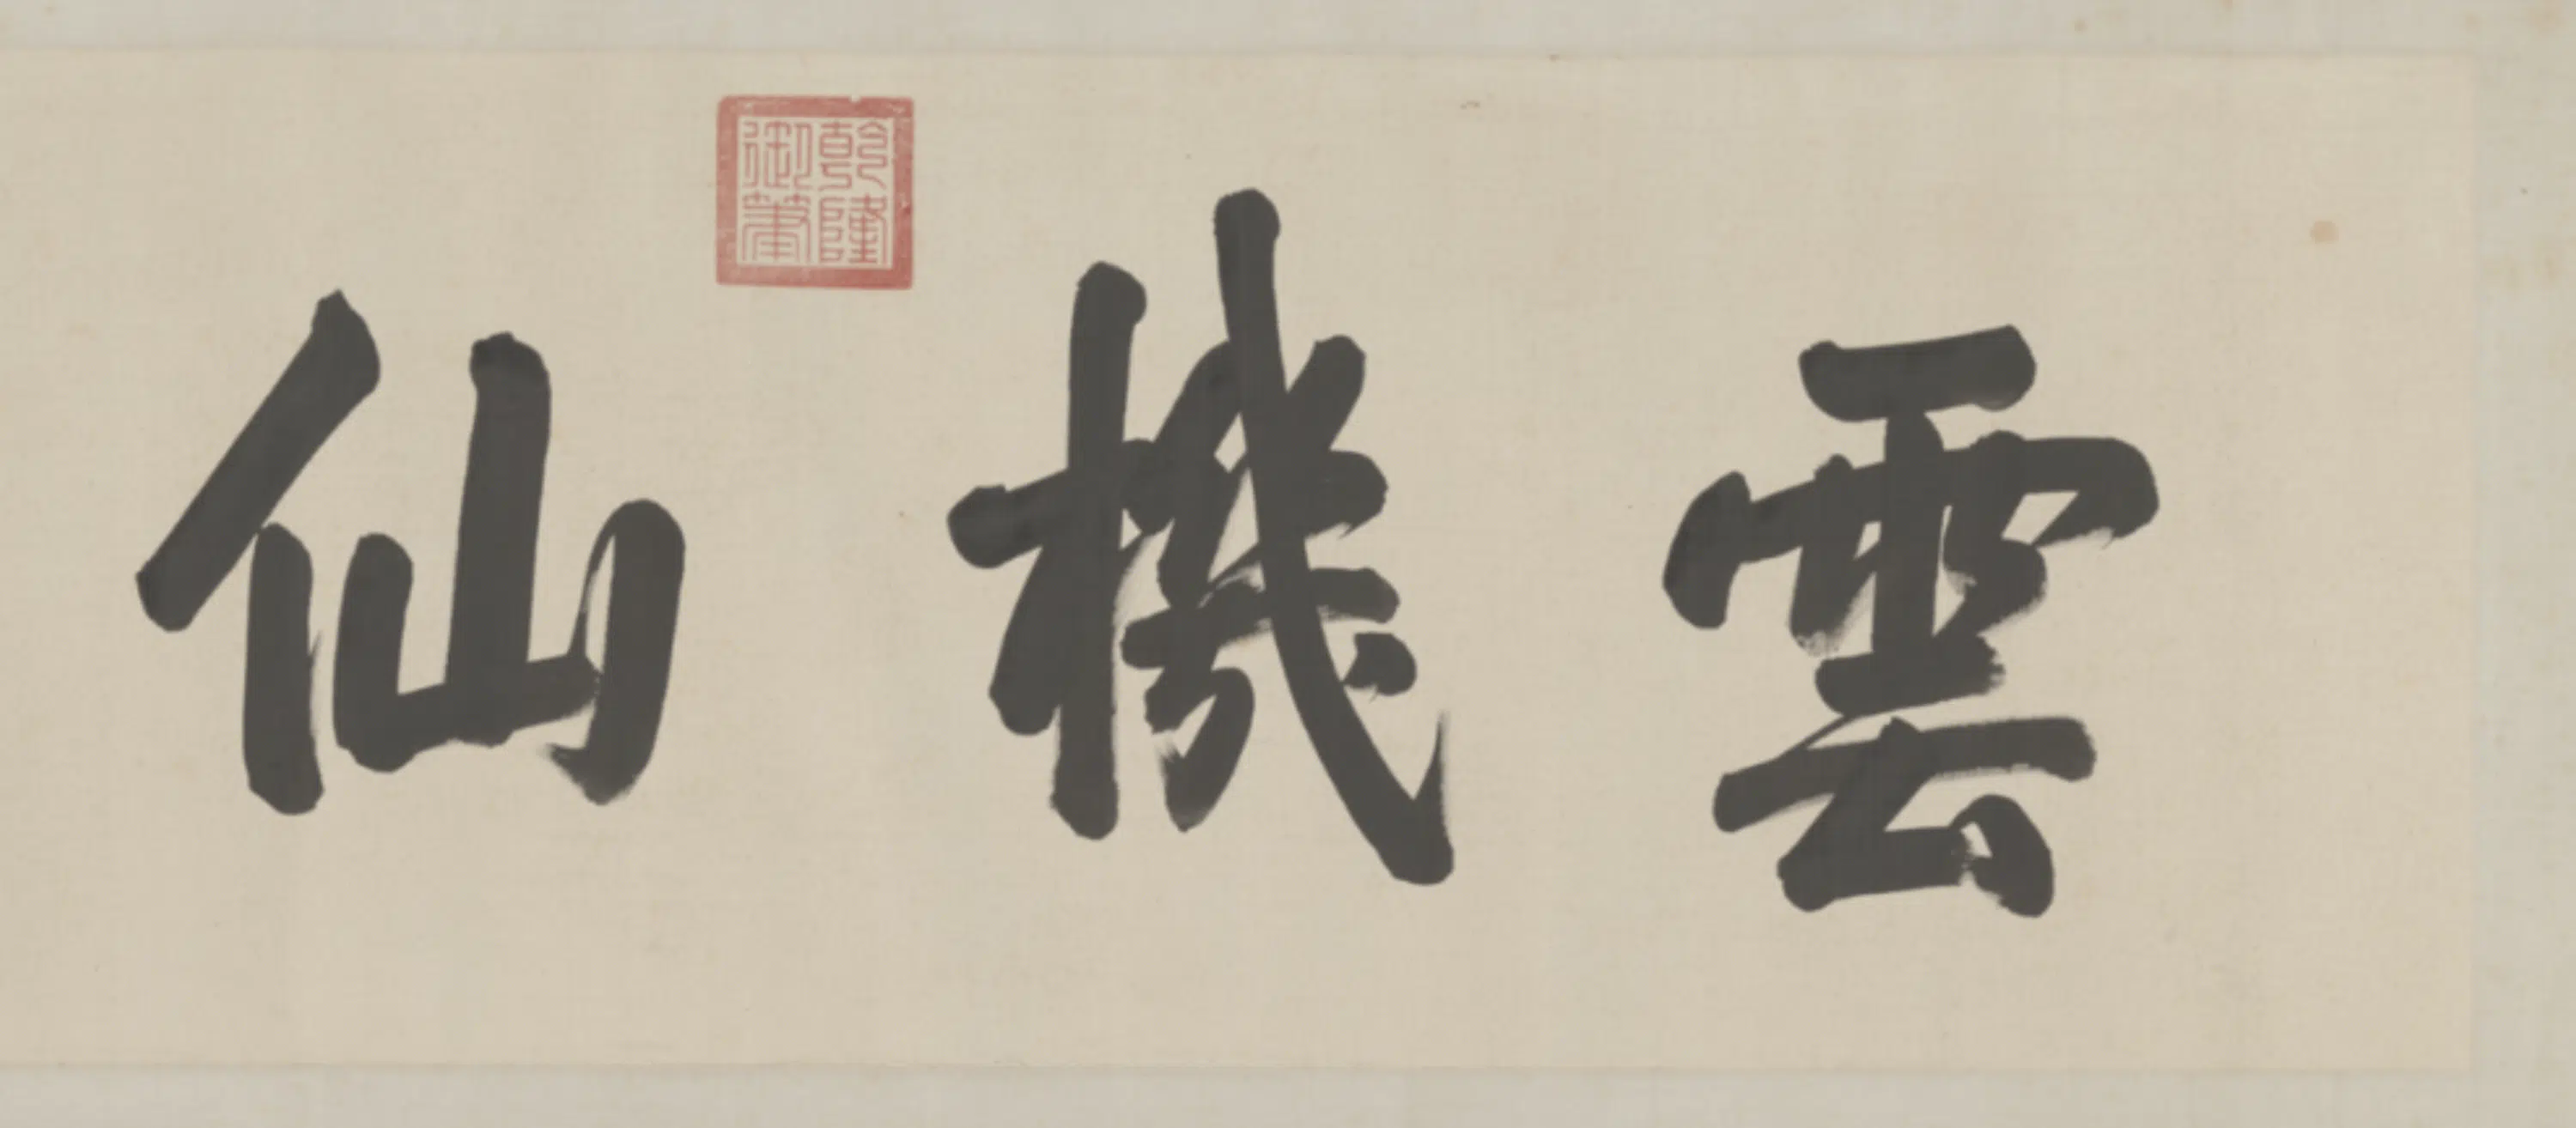 雲機仙
乾隆
御筆